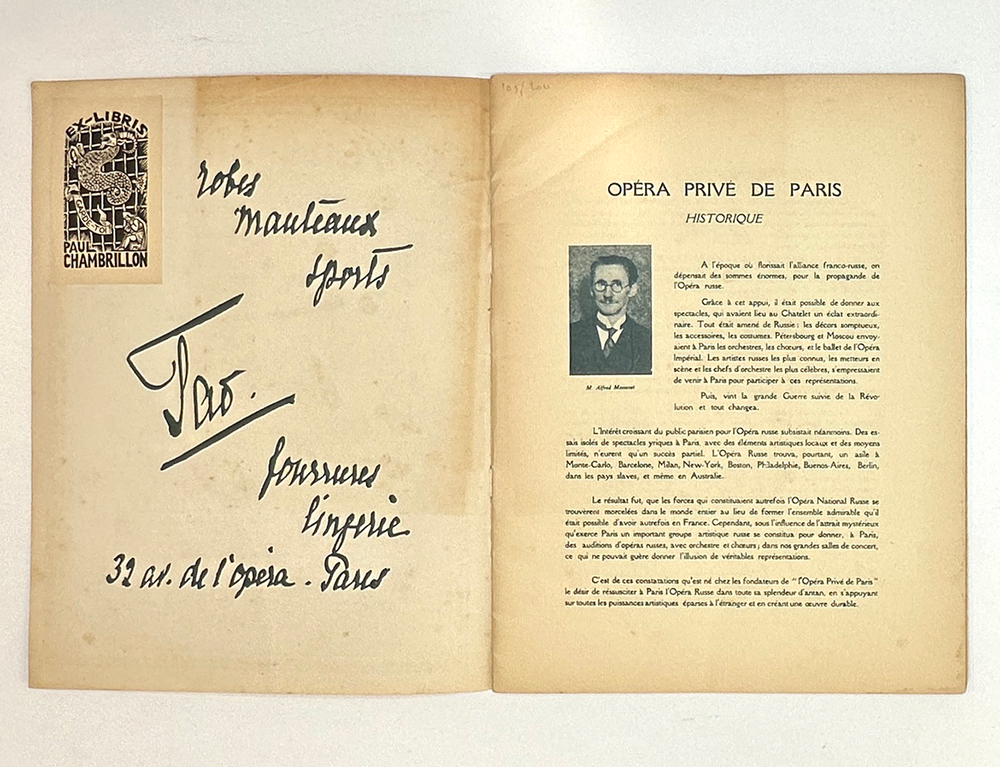 EX-LIBRIS
GARDE-TOI
PAUL
CHAMBRILLON
robes
manteaux
sports
Tao.
fourrures
lingerie
32 av. de l'opéra - Paris
OPÉRA PRIVÉ DE PARIS
HISTORIQUE
M. Alfred Massenet
A l'époque où florissait l'alliance franco-russe, on
dépensait des sommes énormes, pour la propagande de
l'Opéra russe.
Grâce à cet appui, il était possible de donner aux
spectacles, qui avaient lieu au Chatelet un éclat extraordi-
naire. Tout était amené de Russie : les décors somptueux,
les accessoires, les costumes. Pétersbourg et Moscou envoy-
aient à Paris les orchestres, les chœurs, et le ballet de l'Opéra
Impérial. Les artistes russes les plus connus, les metteurs en
scène et les chefs d'orchestre les plus célèbres, s'empressaient
de venir à Paris pour participer à ces représentations.
Puis, vint la grande Guerre suivie de la Révo-
lution et tout changea.
L'Intérêt croissant du public parisien pour l'Opéra russe subsistait néanmoins. Des es-
sais isolés de spectacles yriques à Paris, avec des éléments artistiques locaux et des moyens
limités, n'eurent qu'un succès partiel. L'Opéra Russe trouva, pourtant, un asile à
Monte-Carlo, Barcelone, Milan, New-York, Boston, Philadelphie, Buenos-Aires, Berlin,
dans les pays slaves, et même en Australie.
Le résultat fut, que les forces qui constituaient autrefois l'Opéra National Russe se
trouvèrent morcelées dans le monde entier au lieu de former l'ensemble admirable qu'il
était possible d'avoir autrefois en France. Cependant, sous l'influence de l'attrait mystérieux
qu'exerce Paris un important groupe artistique russe se constitua pour donner, à Paris,
des auditions d'opéras russes, avec orchestre et chœurs ; dans nos grandes salles de concert,
ce qui ne pouvait guère donner l'illusion de véritables représentations.
C'est de ces constatations qu'est né chez les fondateurs de "l'Opéra Privé de Paris"
le désir de réssusciter à Paris l'Opéra Russe dans toute sa splendeur d'antan, en s'appuyant
sur toutes les puissances artistiques éparses à l'étranger et en créant une œuvre durable.